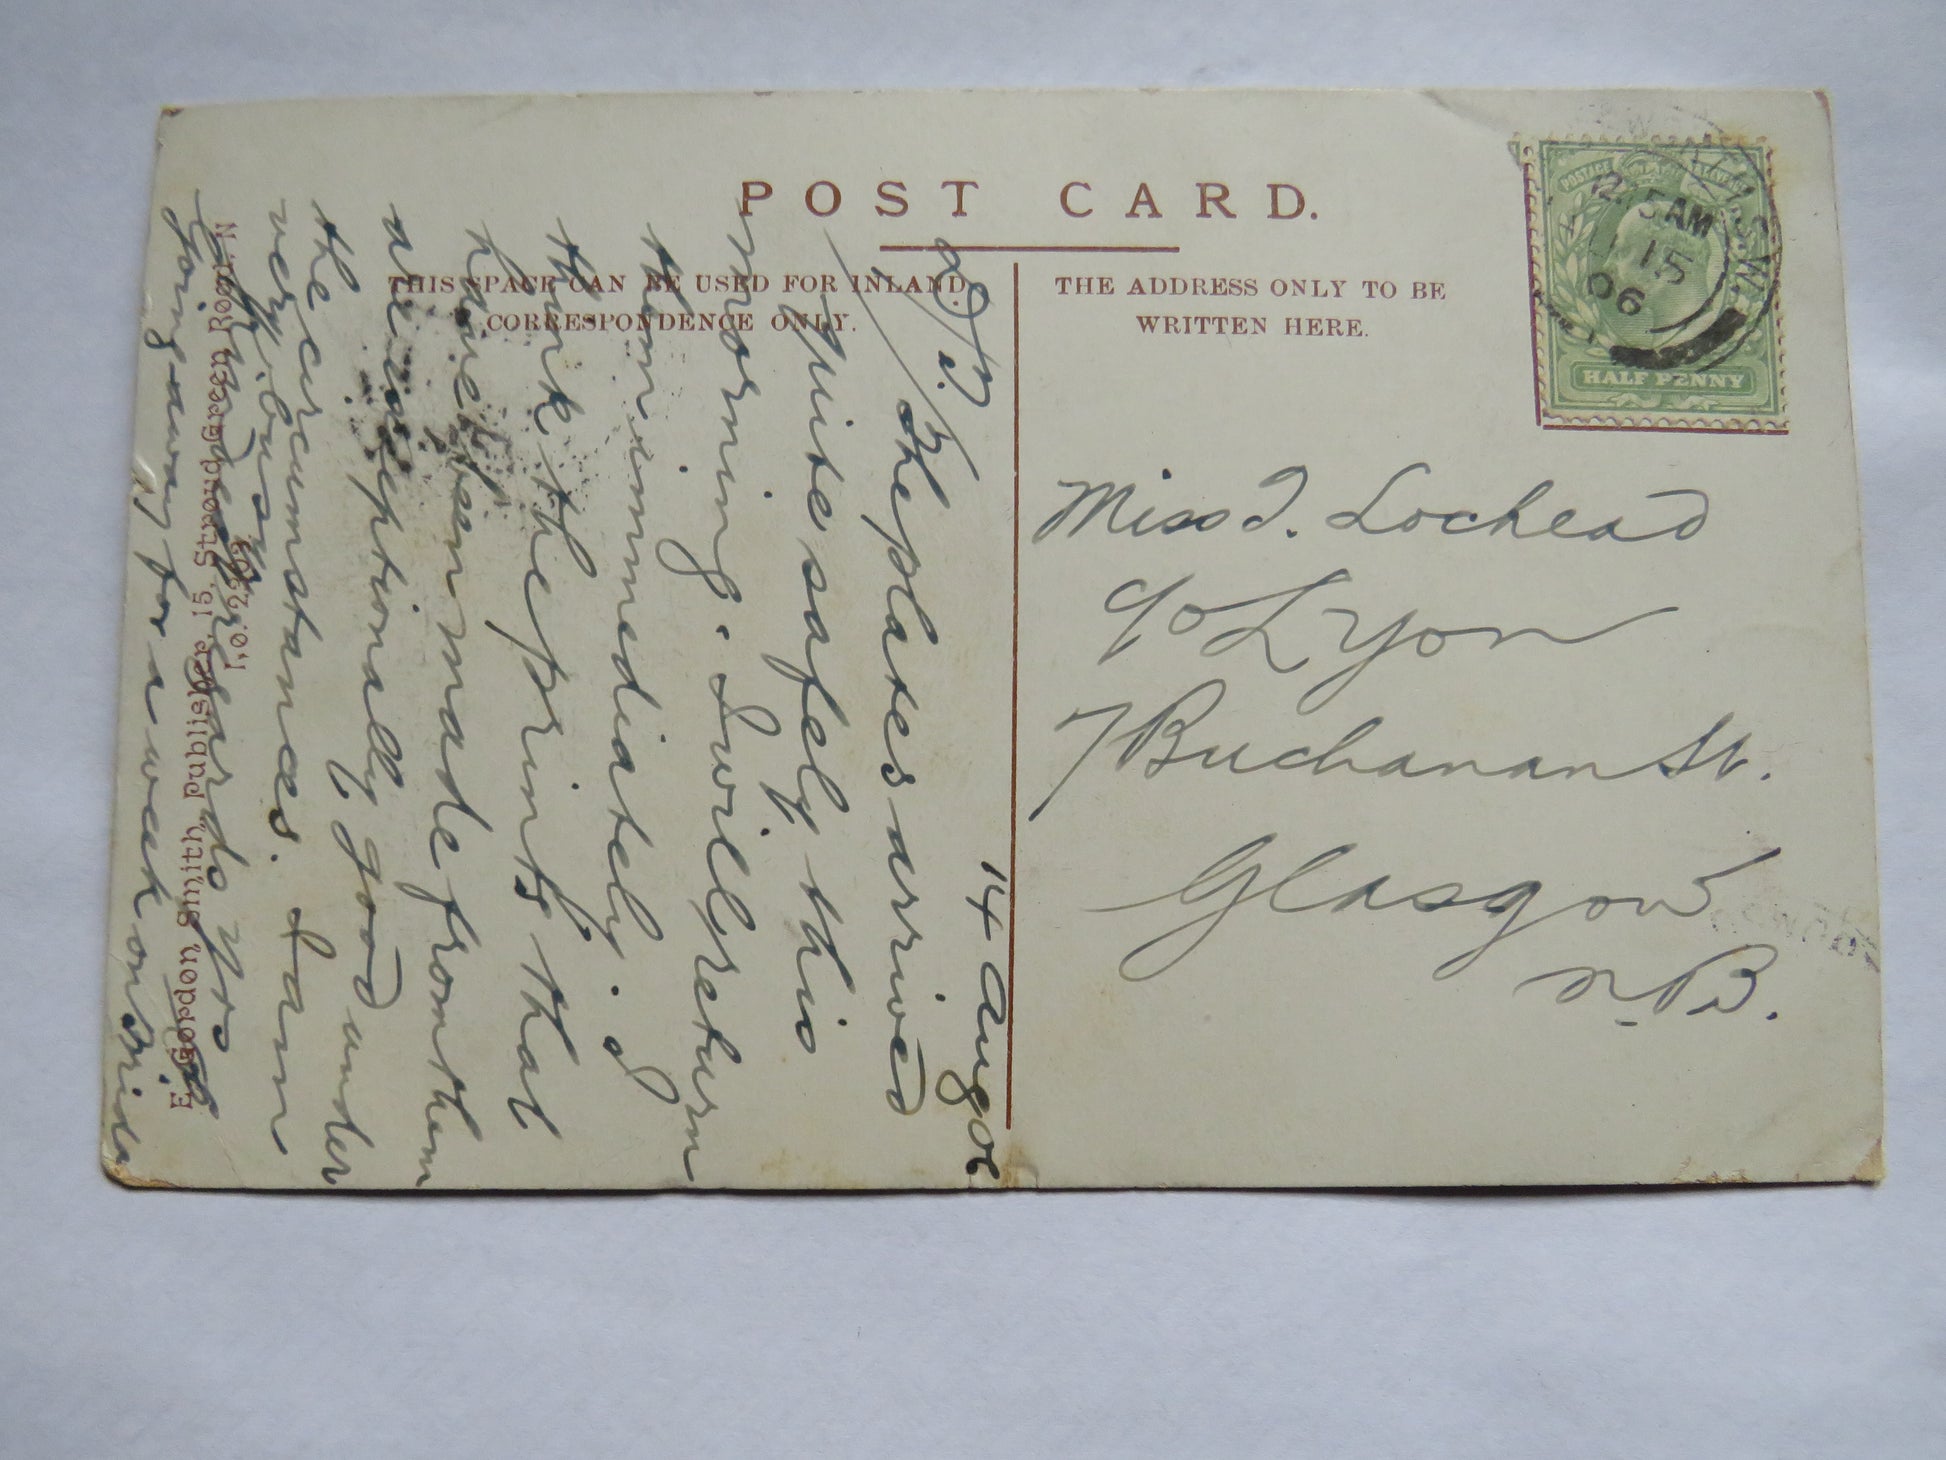 POST CARD.
THIS SPACE CAN BE USED FOR INLAND
CORRESPONDENCE ONLY.
THE ADDRESS ONLY TO BE
WRITTEN HERE.
12.15 AM
15
06
S.W.
POSTAGE
HALF PENNY
Miss J. Lochead
c/o Lyon
7 Buchanan St.
Glasgow
N.B.
14 Aug 06
The plates arrived
quite safely this
morning. I will return
them immediately. I
think the prints that
have been made from them
are exceptionally good under
the circumstances. I am
very busy
Kind regards yrs
Going away for a week on Friday
E. Gordon Smith, Publisher, 15, Stroud Green Road, N